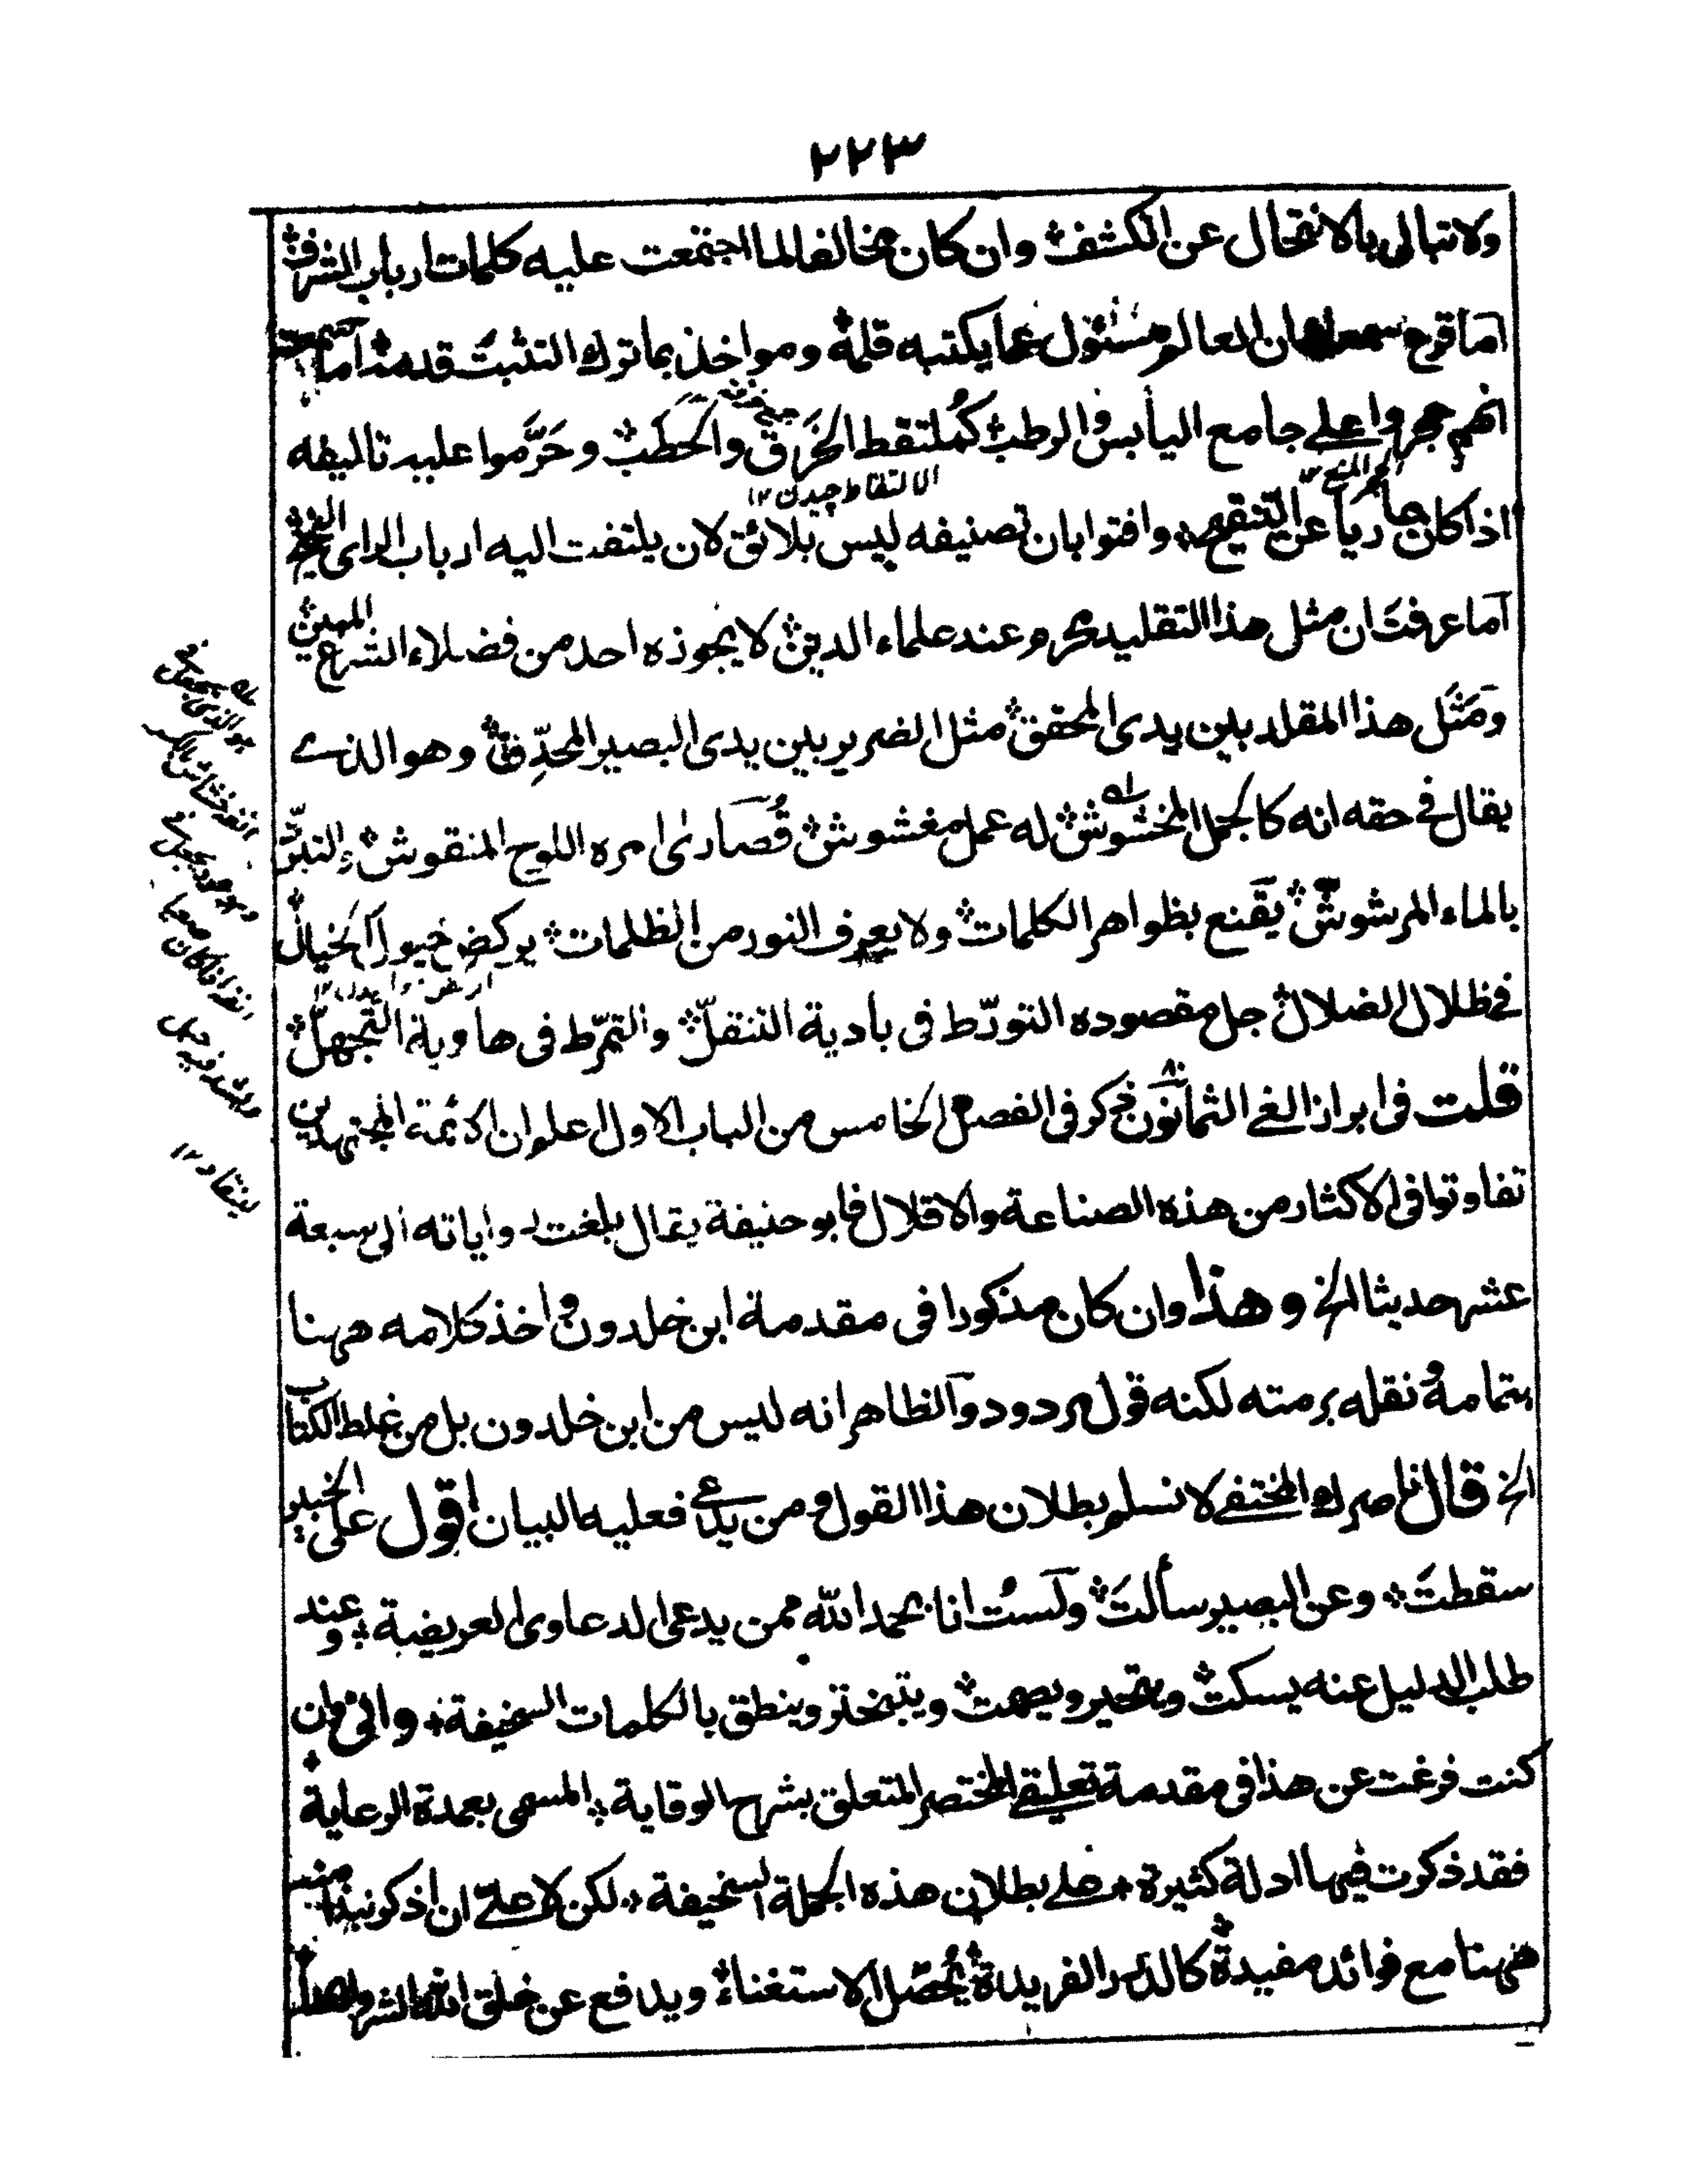 ٢٢٣
ولا تبالى بالانتحال عن الكشف وان كان مخالفا لما اجتمعت عليه كلمات ارباب الشرف
اما قرع سمعك ان العالم مسئول عما يكتبه قلمة ومواخذ بما ترك التثبت قدمه اما
انهم حجروا على جامع اليابس والرطب كملتقط الخرق والحطب وحرموا عليه تاليفه
الالتقاط چيدن ١٢
اذا كان عاريا عن التنقيح وافتوا بان تصنيفه ليس بلائق لان يلتفت اليه ارباب الراى
اما عرفت ان مثل هذا التقليد محرم عند علماء الدين لا يجوزه احد من فضلاء الشرع المهين
ومثل هذا المقلد بين يدى المحقق مثل الضرير بين يدى البصير المحدق وهو الذے
يقال فى حقه انه كالجمل المخشوش له عمل مغشوش قصارى امره اللوح المنقوش والتبر
بالماء المرشوش يقنع بظواهر الكلمات ولا يعرف النور من الظلمات يركض خيول الخيال
فى ظلال الضلال جل مقصوده التورط فى بادية التنقل والتمرط فى هاوية التجهل
قلت فى ابراز الغى الثمانون ذكر فى الفصل الخامس من الباب الاول اعلم ان الائمة المجتهدين
تفاوتوا فى الاكثار من هذه الصناعة والاقلال فابو حنيفة يقال بلغت رواياته الى سبعة
عشر حديثا الخ وهذا وان كان مذكورا فى مقدمة ابن خلدون واخذ كلامه ههنا
بتمامه ونقله برمته لكنه قول مردود والظاهر انه ليس من ابن خلدون بل من غلط الكتاب
الخ قال ناصرك المختفى لا نسلم بطلان هذا القول ومن يدعى فعليه البيان اقول على الخبير
سقطت وعن البصير سألت ولست انا بحمد الله ممن يدعى الدعاوى العريضة وعند
طلب الدليل عنه يسكت ويتحير ويصمت ويتبختر وينطق بالكلمات السخيفة وانى وان
كنت فرغت عن هذا فى مقدمة تعليقى المختصر المتعلق بشرح الوقاية المسمى بعمدة الرعاية
فقد ذكرت فيها ادلة كثيرة على بطلان هذه الجملة السخيفة لكن لا على ان اذكر نبذا منه
ههنا مع فوائد مفيدة كالدرر الفريدة يحصل الاستغناء ويدفع عن خلق الله الشر